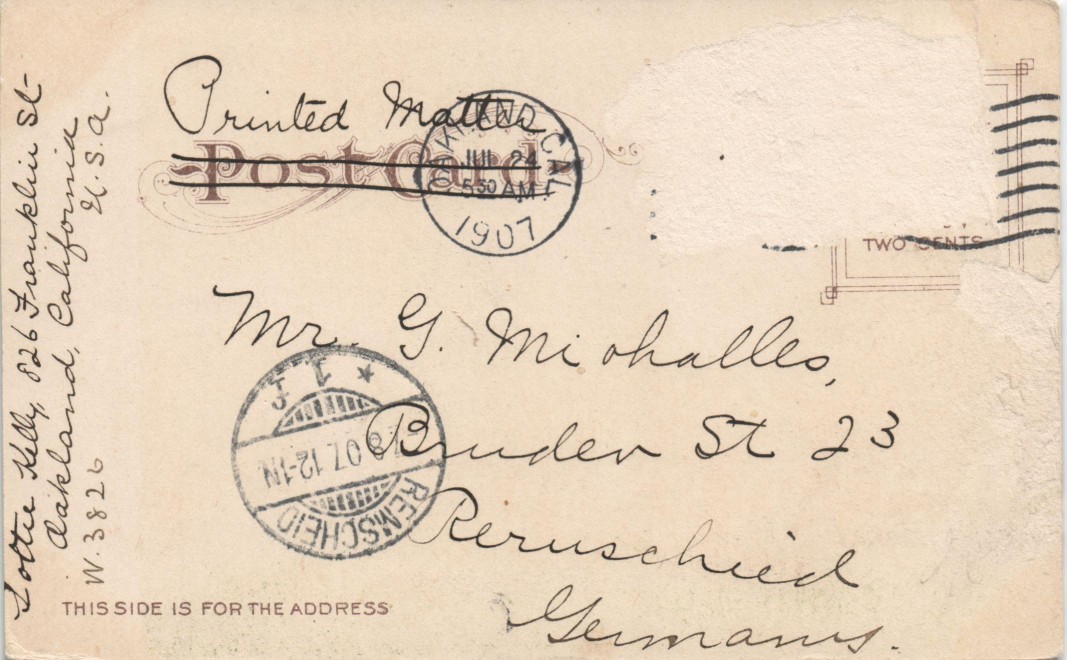 Printed Matter
Post Card
OAKLAND CAL.
JUL 24
5 30 AM
1907
TWO CENTS
Mr. G. Michalles,
Bruder St 23
Remschied
Germany.
REMSCHEID
8 07 12-1N
* 1 f
Lottie Kelly, 826 Franklin St-
Oakland, California
U.S.A.
W.3826
THIS SIDE IS FOR THE ADDRESS